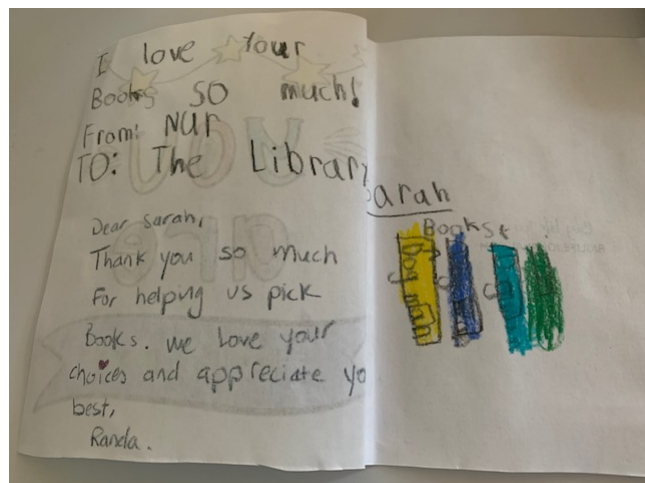 I love Your
Books SO much!
From: Nur
TO: The Library
Dear Sarah,
Thank you so much
For helping us pick
Books. we Love your
choices and appreciate yo
best,
Randa.
arah
Books
Dog man